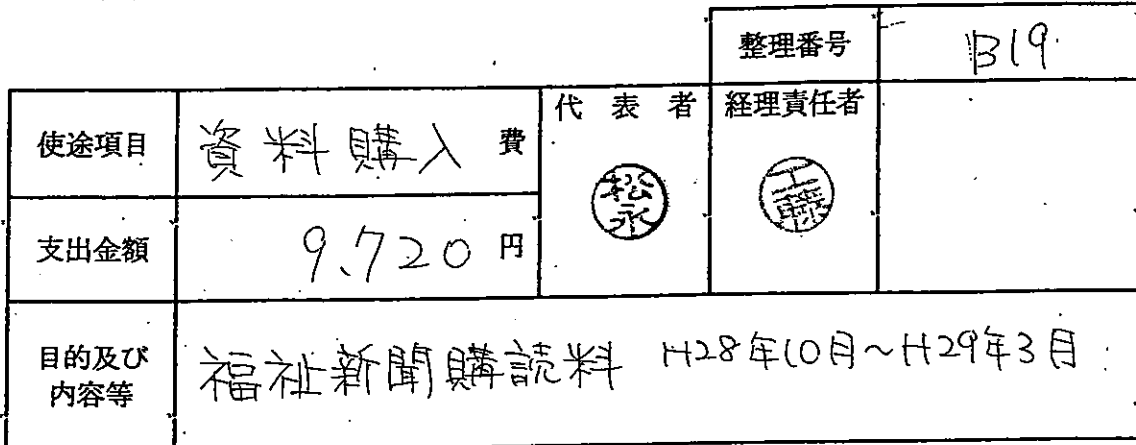 整理番号 B19
使途項目 資料購入費 代表者 経理責任者
松永 工藤
支出金額 9,720円
目的及び内容等 福祉新聞購読料 H28年10月～H29年3月